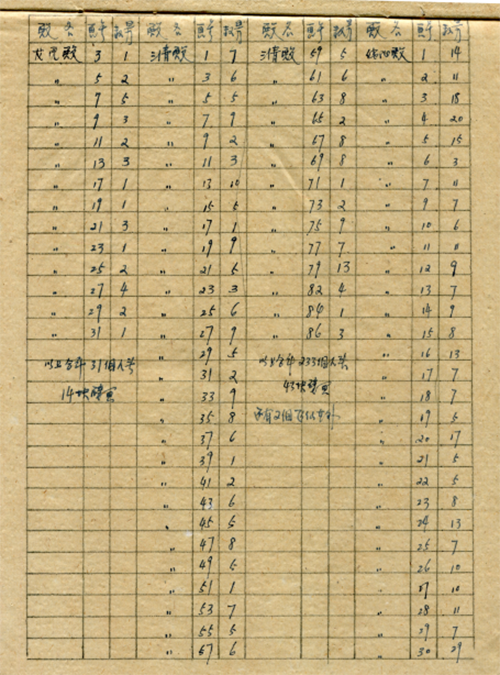 殿名 殿名 殿名 殿名
殿 3 1 三清殿 1 7 三清殿 59 5 殿 1 14
〃 5 2 〃 3 6 〃 61 6 〃 2 11
〃 7 5 〃 5 5 〃 63 8 〃 3 18
〃 9 3 〃 7 9 〃 65 2 〃 4 20
〃 11 2 〃 9 2 〃 67 8 〃 5 15
〃 13 3 〃 11 3 〃 69 8 〃 6 3
〃 17 1 〃 13 10 〃 71 1 〃 7 11
〃 19 1 〃 15 5 〃 73 2 〃 9 7
〃 21 3 〃 17 1 〃 75 9 〃 10 6
〃 23 1 〃 19 9 〃 77 7 〃 11 11
〃 25 2 〃 21 5 〃 79 13 〃 12 9
〃 27 4 〃 23 3 〃 82 4 〃 13 7
〃 29 2 〃 25 6 〃 84 1 〃 14 9
〃 31 1 〃 27 9 〃 86 3 〃 15 8
以上合計31個人头 〃 29 5 以上合計233個人头 〃 16 13
〃 31 2 43块壁画 〃 17 7
14块壁画 〃 33 9 〃 18 7
〃 35 8 还有2個 〃 19 5
〃 37 6 〃 20 17
〃 39 1 〃 21 5
〃 41 2 〃 22 5
〃 43 6 〃 23 8
〃 45 5 〃 24 13
〃 47 8 〃 25 7
〃 49 5 〃 26 10
〃 51 1 〃 27 10
〃 53 7 〃 28 11
〃 55 5 〃 29 7
〃 57 6 〃 30 29